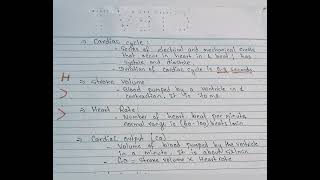 ⇒ Cardiac cycle:
- Series of electrical and mechanical events
that occur in heart in 1 beat, has
systole and diastole
- Duration of cardiac cycle is 0.8 seconds.
⇒ Stroke Volume
- Blood pumped by a ventricle in 1
contraction. It is 70 ml
⇒ Heart Rate:
- Number of heart beat per minute
normal range is (60-100) beats/min
⇒ Cardiac output (CO)
- Volume of blood pumped by the ventricle
in a minute. It is about 5L/min
- CO = Stroke volume x Heart rate